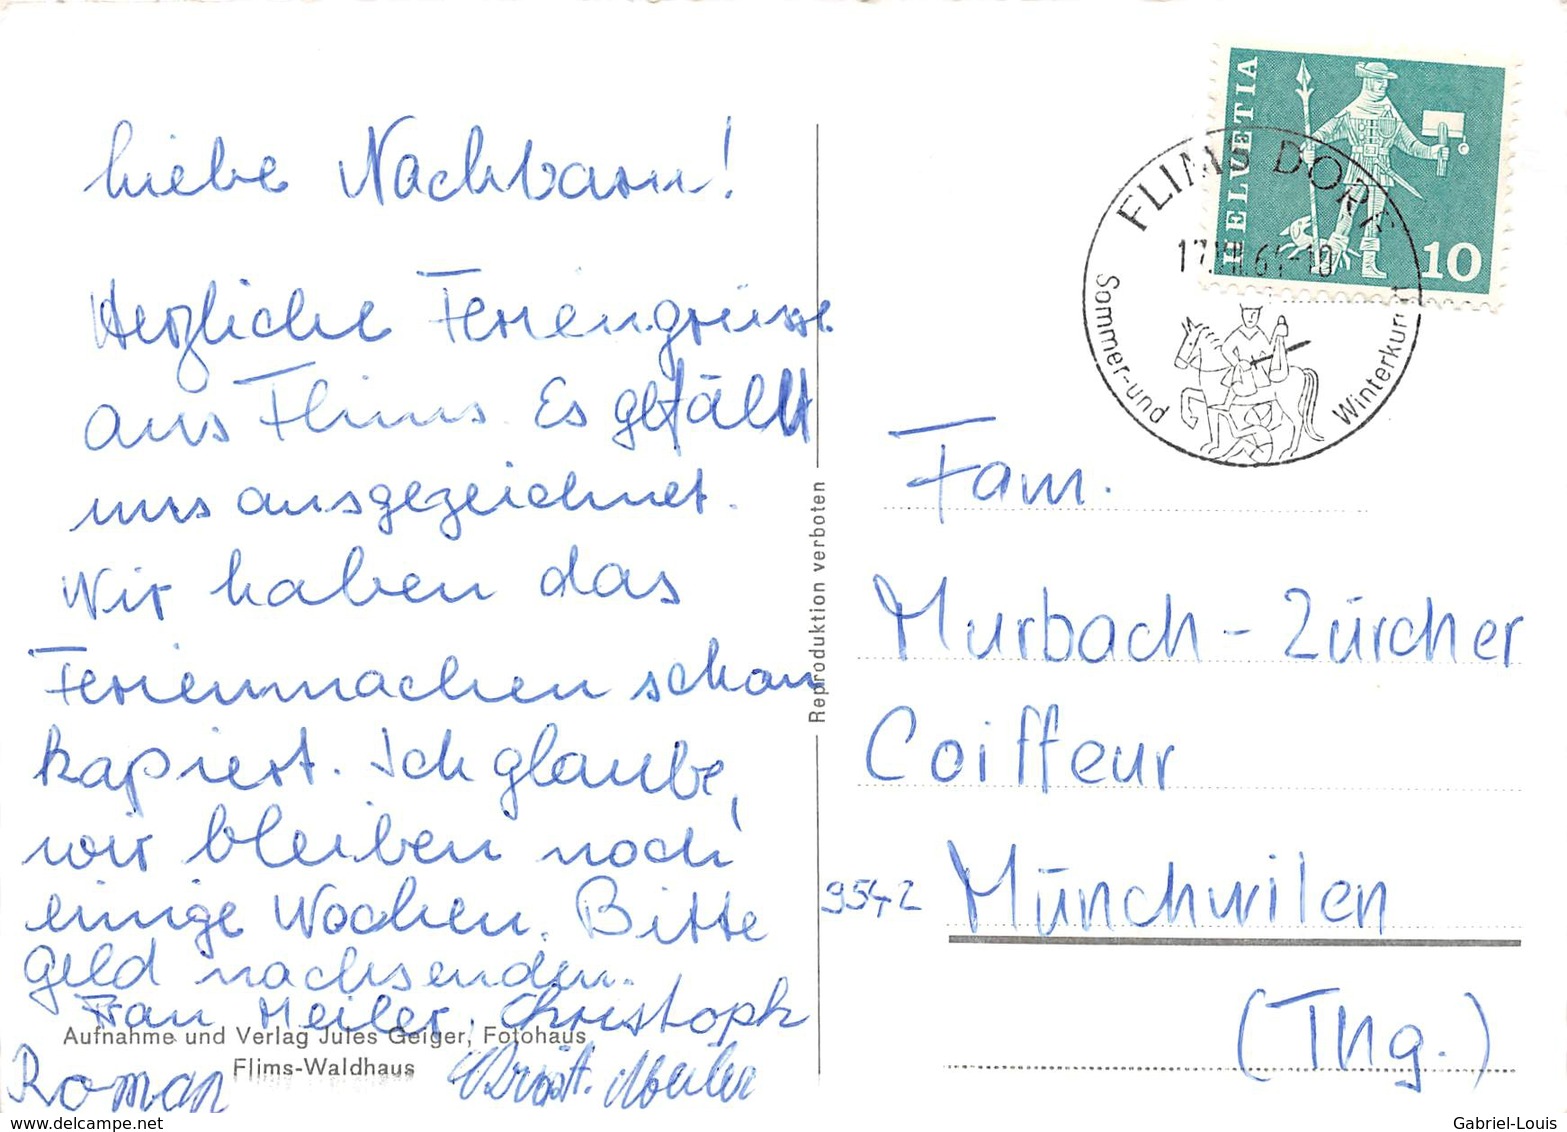 Liebe Nachbarn!
Herzliche Feriengrüsse
aus Flims. Es gefällt
uns ausgezeichnet.
Wir haben das
Ferienmachen schon
kapiert. Ich glaube,
wir bleiben noch
einige Wochen. Bitte
Geld nachsenden.
Frau Meiler, Christoph
Roman
Meiler
Aufnahme und Verlag Jules Geiger, Fotohaus
Flims-Waldhaus
Reproduktion verboten
HELVETIA
10
FLIMS DORF
Sommer-und Winterkurort
Fam.
Murbach-Zürcher
Coiffeur
9542 Münchwilen
(Thg.)
www.delcampe.net
Gabriel-Louis